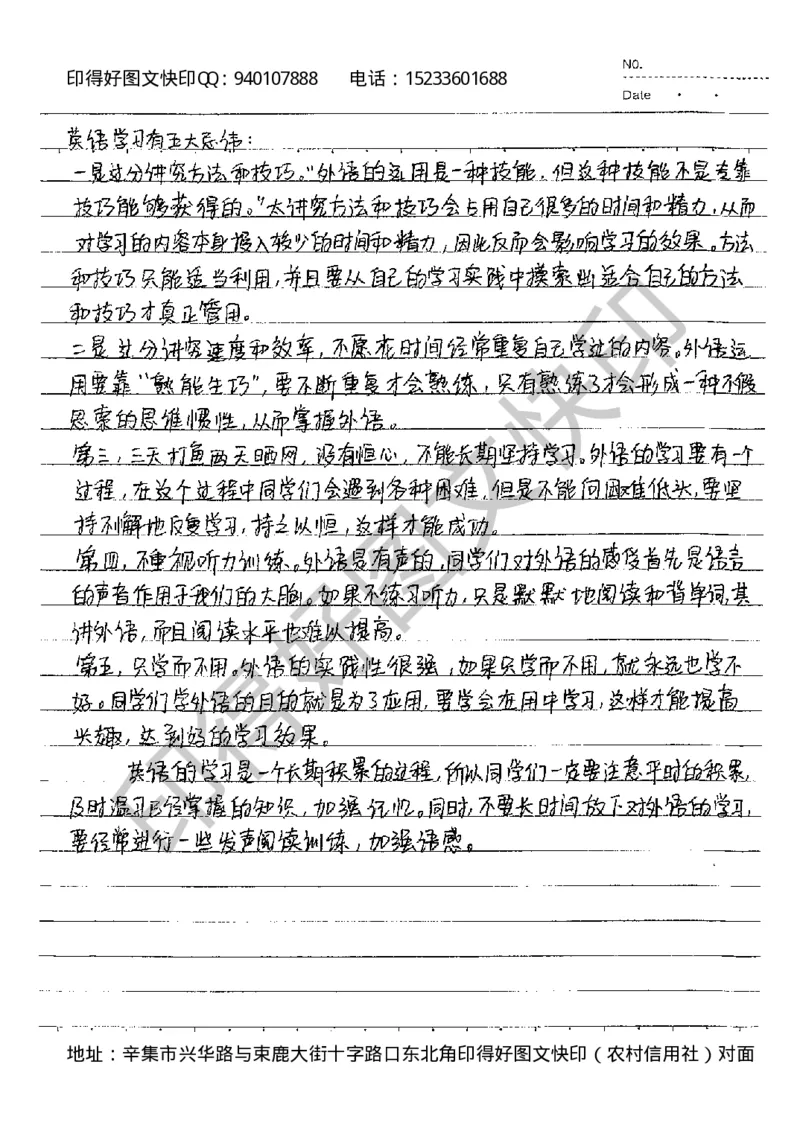 印得好图文快印QQ：940107888 电话：15233601688
NO.
Date
英语学习有五大忌讳：
一是过分讲究方法和技巧。"外语的运用是一种技能，但这种技能不是专靠
技巧能够获得的。"太讲究方法和技巧会占用自己很多的时间和精力，从而
对学习的内容本身投入较少的时间和精力，因此反而会影响学习的效果。方法
和技巧只能适当利用，并且要从自己的学习实践中摸索出适合自己的方法
和技巧才真正管用。
二是过分讲究速度和效率，不愿花时间经常重复自己学过的内容。外语运
用要靠"熟能生巧"，要不断重复才会熟练，只有熟练了才会形成一种不假
思索的思维惯性，从而掌握外语。
第三，三天打鱼两天晒网，没有恒心，不能长期坚持学习。外语的学习要有一个
过程，在这个过程中同学们会遇到各种困难，但是不能向困难低头，要坚
持不懈地反复学习，持之以恒，这样才能成功。
第四，不重视听力训练。外语是有声的，同学们对外语的感受首先是语言
的声音作用于我们的大脑。如果不练习听力，只是默默地阅读和背单词，其
讲外语，而且阅读水平也难以提高。
第五，只学而不用。外语的实践性很强，如果只学而不用，就永远也学不
好。同学们学外语的目的就是为了应用，要学会在用中学习，这样才能提高
兴趣，达到好的学习效果。
英语的学习是一个长期积累的过程，所以同学们一定要注意平时的积累，
及时温习已经掌握的知识，加强记忆。同时，不要长时间放下对外语的学习，
要经常进行一些发声阅读训练，加强语感。
印得好图文快印
地址：辛集市兴华路与束鹿大街十字路口东北角印得好图文快印（农村信用社）对面